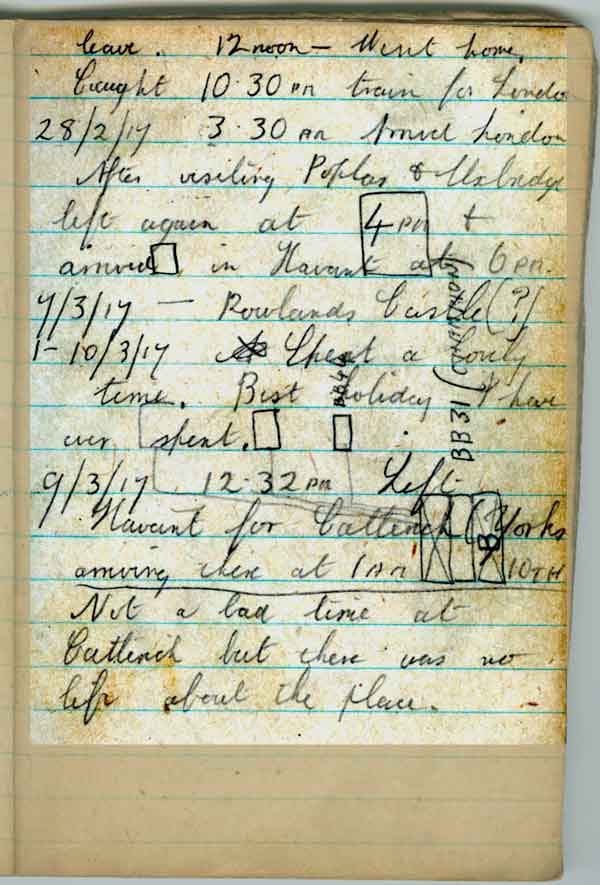 leave. 12 noon - Went home.
Caught 10.30 PM train for London
28/2/17 3.30 AM Arrived London
After visiting Poplar & Uxbridge
left again at 4 PM &
arrived in Havant at 6 PM.
7/3/17 — Rowlands Castle (?!
1-10/3/17 Spent a lovely
time. Best holiday I have
ever spent.
9/3/17 12.32 PM Left
Havant for Catterick (Yorks
arriving there at 1 AM 10TH
Not a bad time at
Catterick but there was no
life about the place.
BB31
BB44